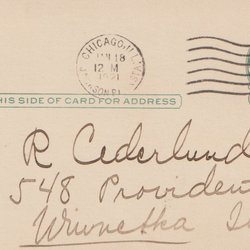 CHICAGO, ILL.
JAN 18
12 M
1921
THIS SIDE OF CARD FOR ADDRESS
R Cederlund
548 Providen
Winnetka I